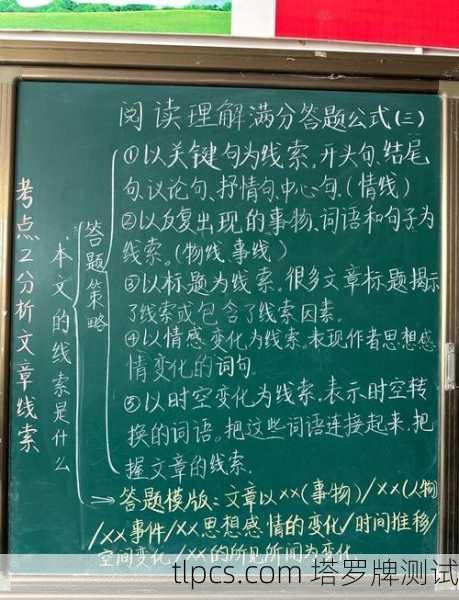 阅读理解满分答题公式(三)
考点2分析文章线索
本文的线索是什么
答题策略
①以关键句为线索,开头句、结尾
句、议论句、抒情句、中心句.(情线)
②以反复出现的事物、词语和句子为
线索。(物线、事线)
③以标题为线索.很多文章标题揭示
了线索或包含了线索因素。
④以情感变化为线索.表现作者思想感
情变化的词句.
⑤以时空变化为线索.表示时空转
换的词语。把这些词语连接起来.把
握文章的线索.
答题模版:文章以××(事物)/××(人物)
/××事件/××思想感情的变化/时间推移/
空间变化/××的所见所闻为变化.
tlpcs.com 塔罗牌测试